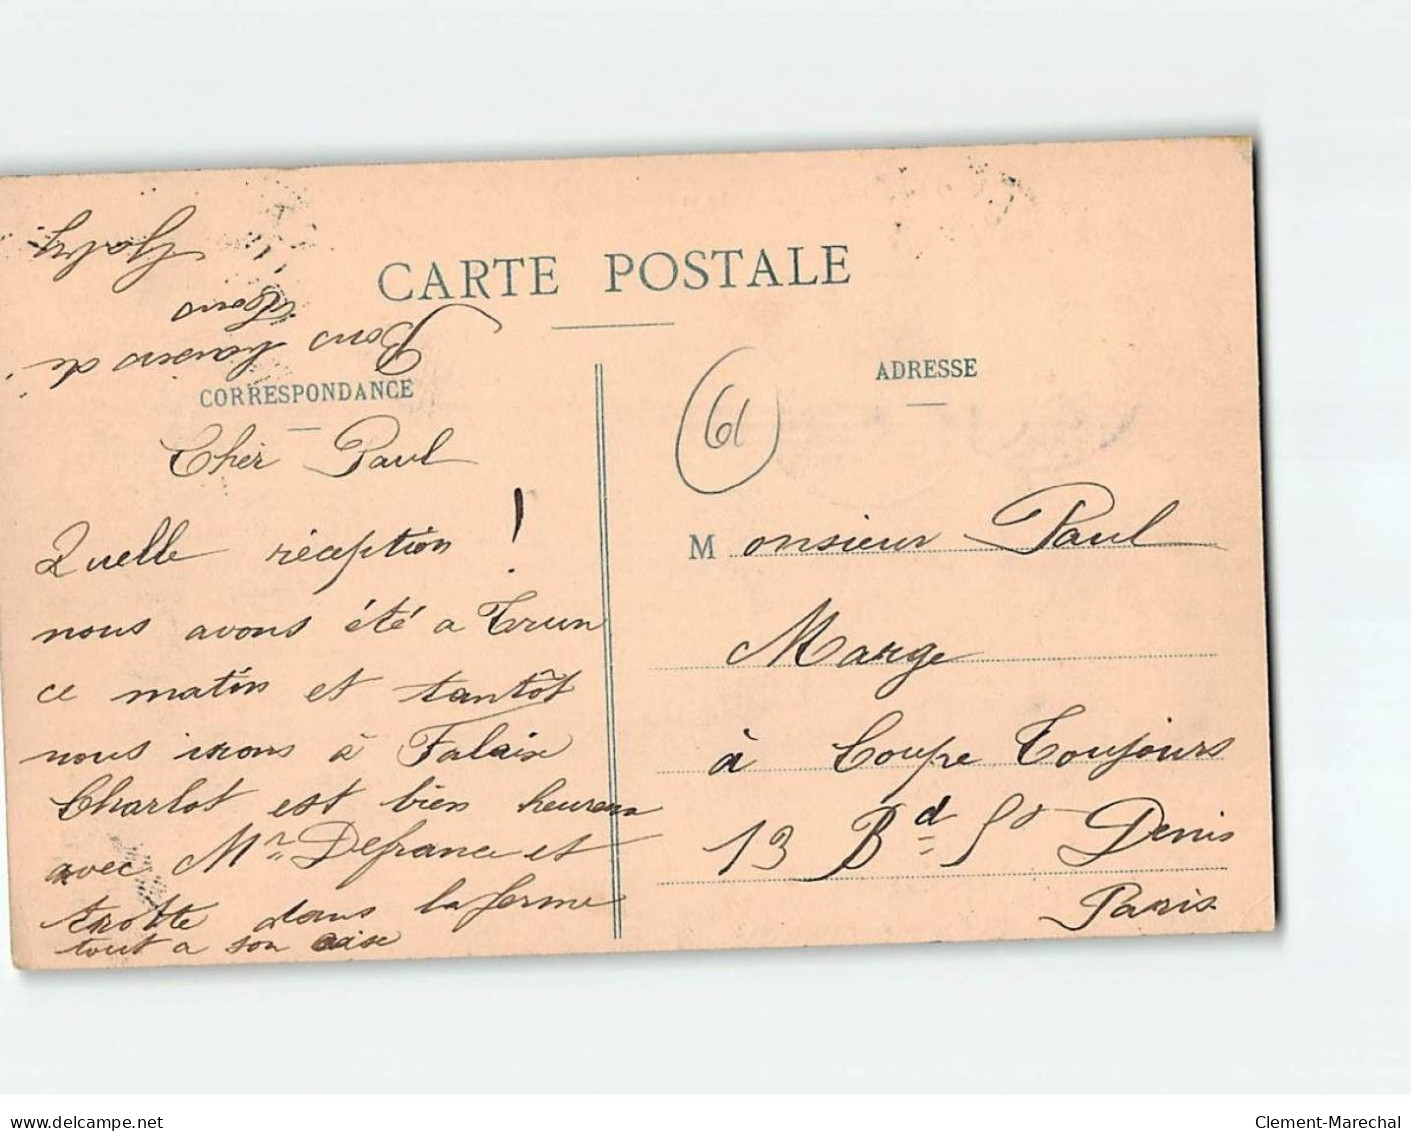 CARTE POSTALE
CORRESPONDANCE
Cher Paul
Quelle réception !
nous avons été a Trun
ce matin et tantôt
nous irons à Falaise
Charlot est bien heureux
avec Mr Defrance et
trotte dans la ferme
tout a son aise
Bons baisers de
tous
Gaby
ADRESSE
61
Monsieur Paul
Marge
à Coupe Toujours
13 Bd St Denis
Paris
www.delcampe.net
Clement-Marechal